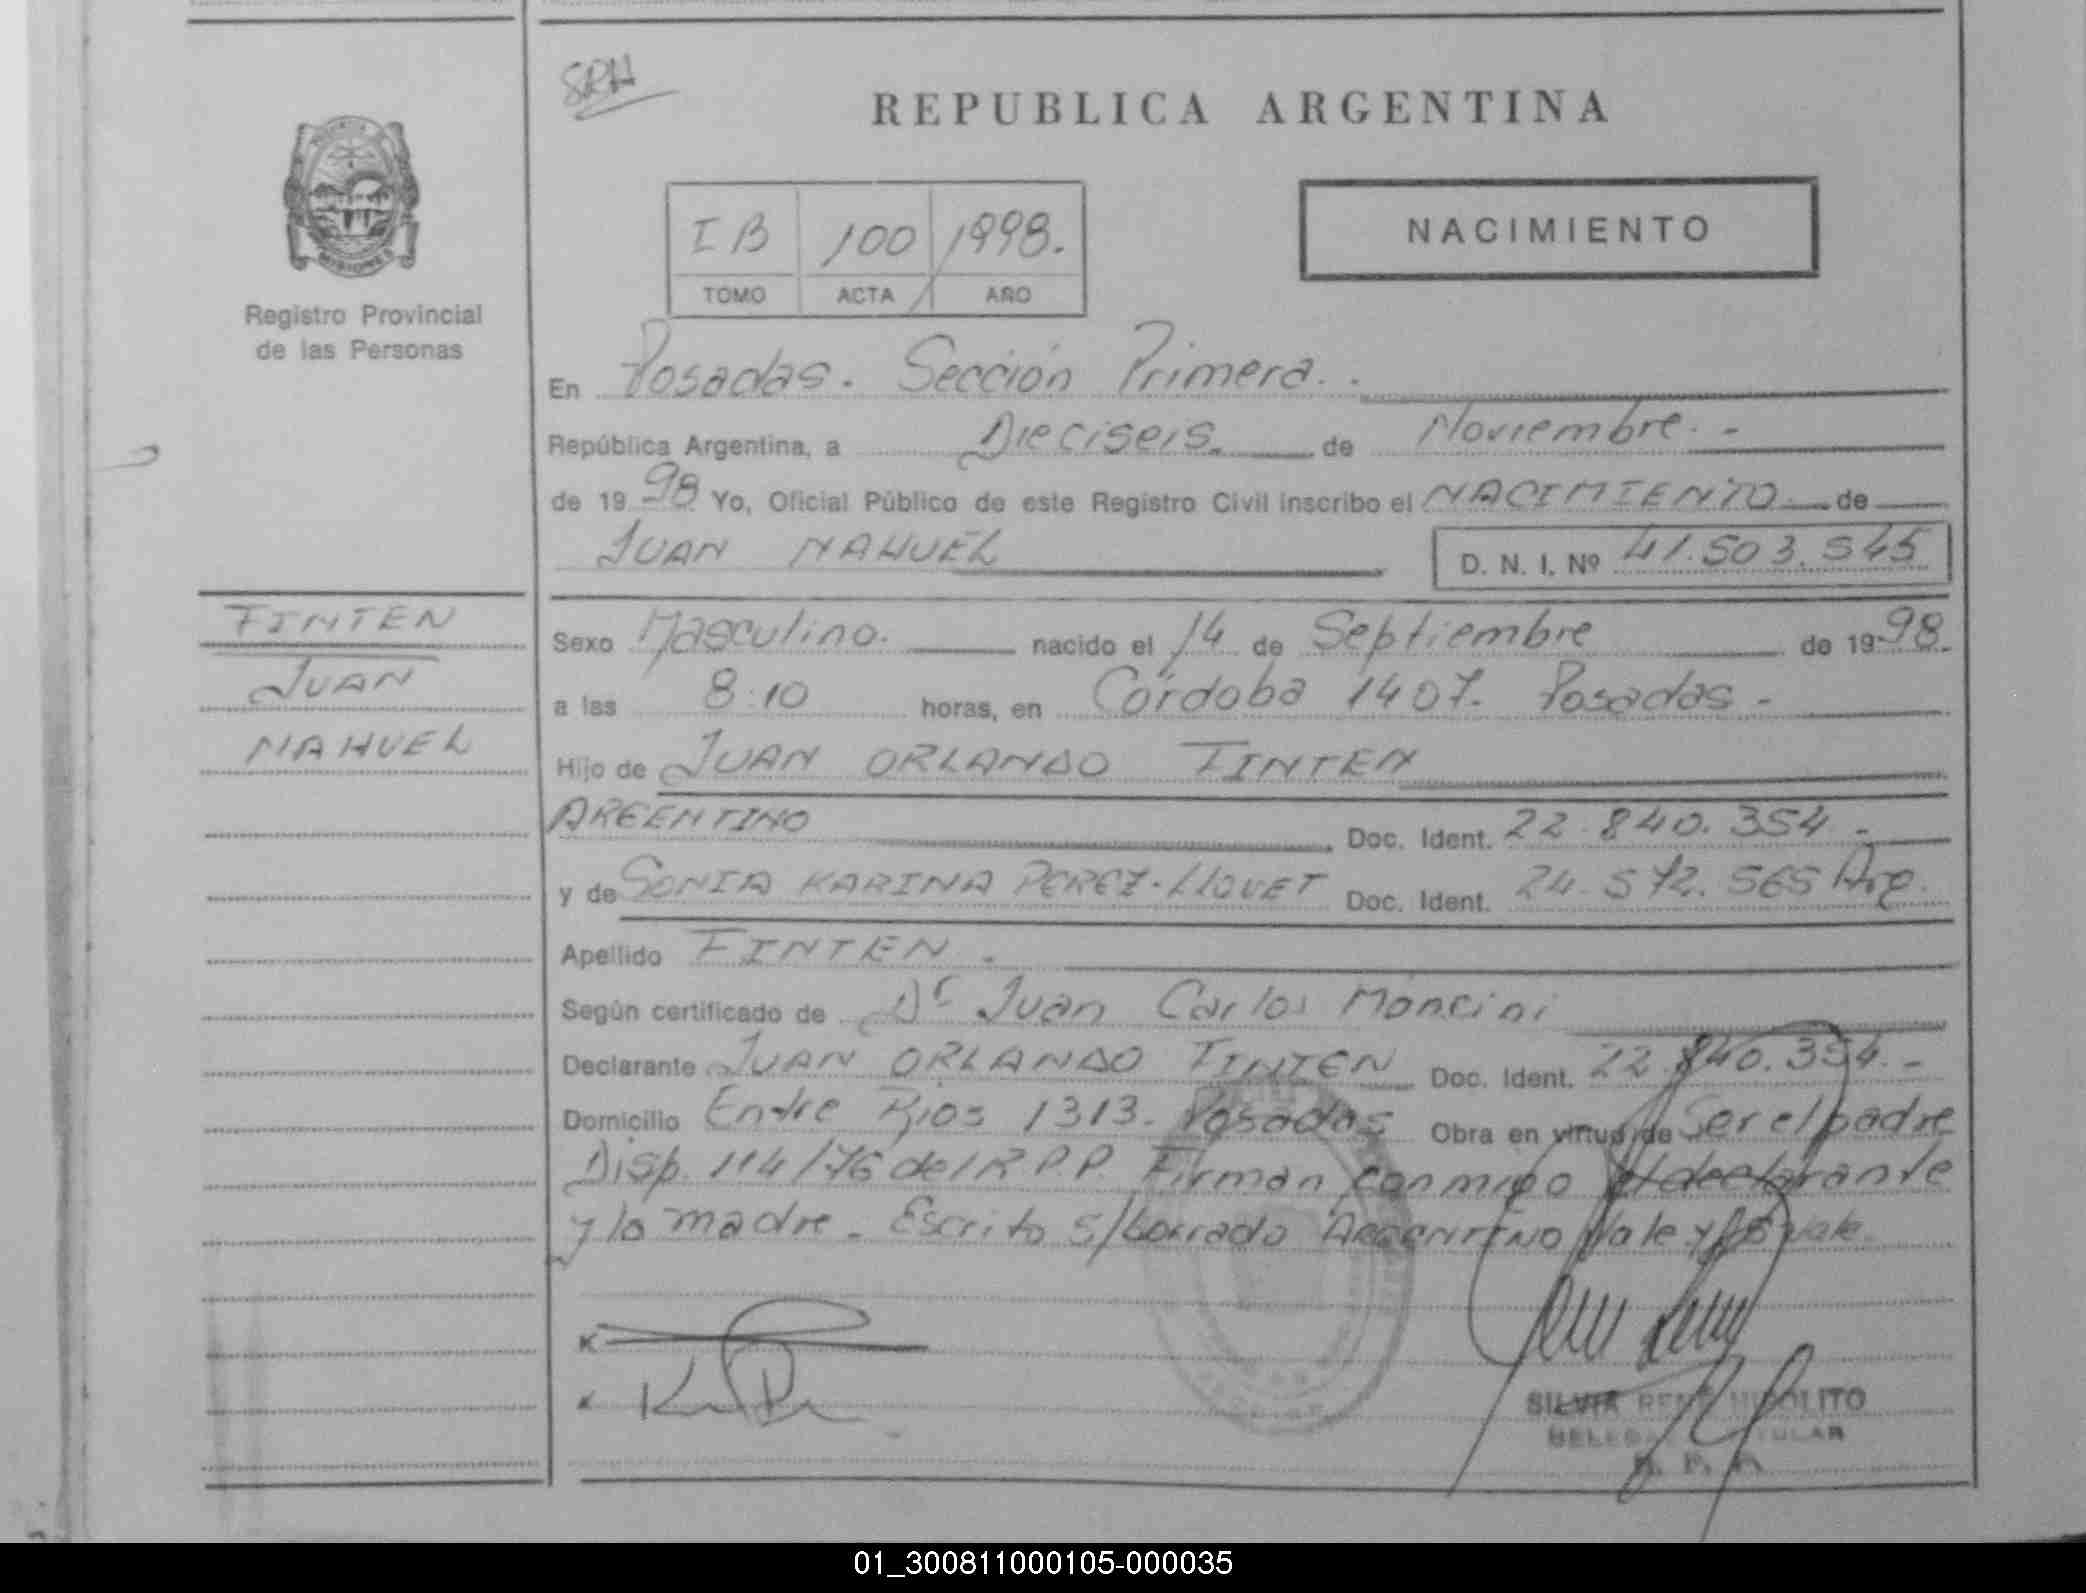 SRH
REPUBLICA ARGENTINA
MISIONES
Registro Provincial
de las Personas
IB 100 1998.
TOMO ACTA AÑO
NACIMIENTO
En Posadas. Sección Primera.
República Argentina, a Dieciseis. de Noviembre. -
de 1998 Yo, Oficial Público de este Registro Civil inscribo el NACIMIENTO de
JUAN NAHUEL D. N. I. Nº 41.503.545
FINTEN
JUAN
NAHUEL
Sexo Masculino. nacido el 14 de Septiembre de 1998.
a las 8:10 horas, en Córdoba 1407. Posadas -
Hijo de JUAN ORLANDO FINTEN
ARGENTINO Doc. Ident. 22.840.354 -
y de SONIA KARINA PEREZ-LLOVET Doc. Ident. 24.572.565 Arg.
Apellido FINTEN .
Según certificado de Dr Juan Carlos Moncini
Declarante JUAN ORLANDO FINTEN Doc. Ident. 22.840.354. -
Domicilio Entre Rios 1313. Posadas Obra en virtud de Ser el padre
Disp. 114/76 del R.P.P. Firman conmigo el declarante
y la madre. Escrito s/borrado ARGENTINO Vale y
SILVIA RENE HIPOLITO
01_300811000105-000035